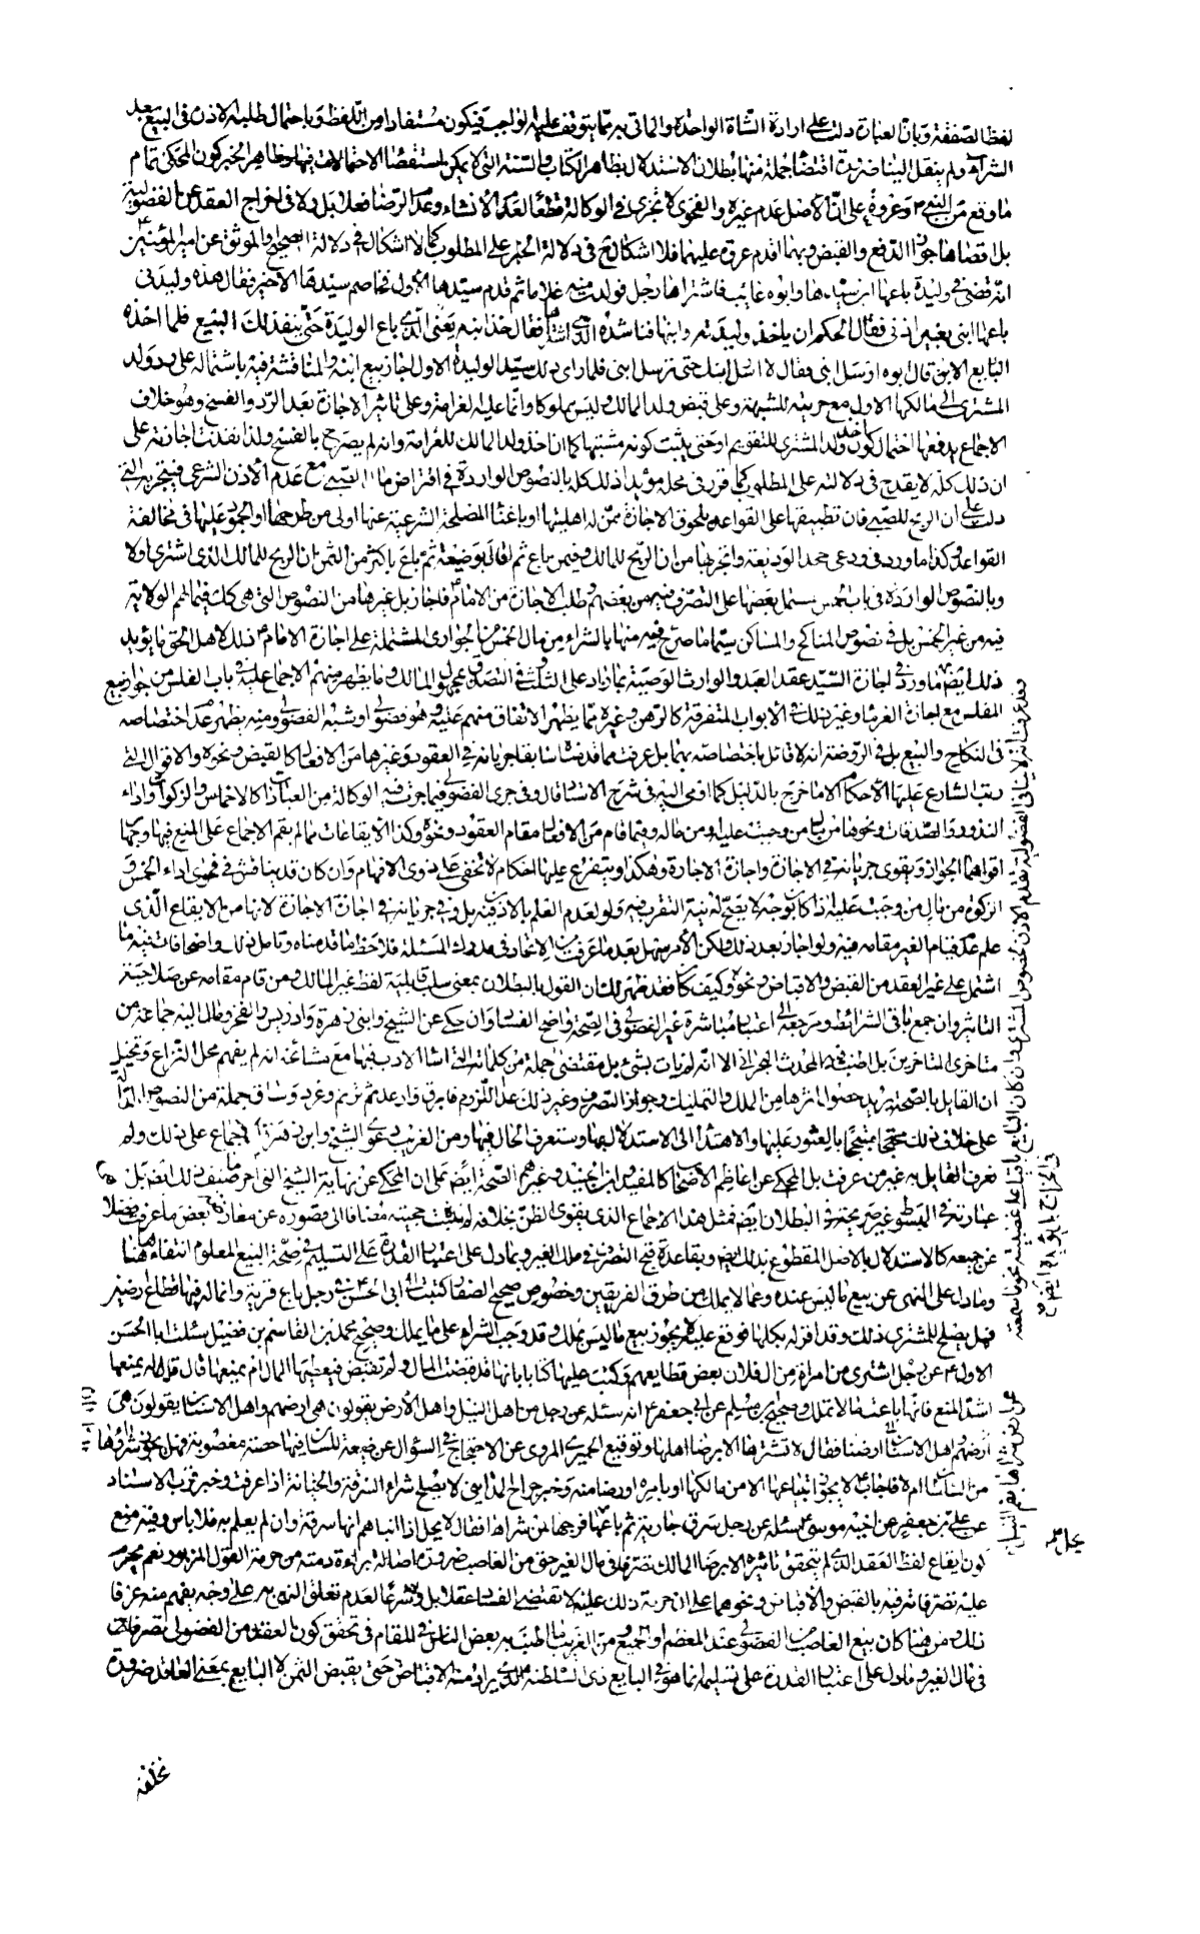 لفظ الصفقة وبان العبارة دلت على ارادة الشاة الواحدة والماتى به مما يتوقف عليه الواجب فيكون مستفادا من اللفظ وباحتمال طلبه الاذن فى البيع بعد
الشراء ولم ينقل الينا ضرورة اقتضاء جملة منها بطلان الاستدلال بظاهر الكتاب والسنة التى لا يمكن استقصاء الاحتمالات فيها وظاهر الخبر كون المحكى تمام
ما وقع من النبى ص وعروة على ان الاصل عدم غيره والفحوى لا تجرى فى الوكالة قطعا لعدم الانشاء وعدم الرضا فعلا بل ولا فى اخراج العقد عن الفضولية
بل اقصاها جواز الدفع والقبض وبهما اقدم عروة عليهما فلا اشكال ح فى دلالة الخبر على المطلوب كما لا اشكال فى دلالة الصحيح والموثق عن امير المؤمنين ع
انه قضى فى وليدة باعها ابن سيدها وابوه غائب فاشتراها رجل فولدت منه غلاما ثم قدم سيدها الاول فخاصم سيدها الاخير فقال هذه وليدتى
باعها ابنى بغير اذنى فقال الحكم ان ياخذ وليدته وابنها فناشده الذى اشتراها فقال خذ ابنه يعنى الذى باع الوليدة حتى ينفذ لك البيع فلما اخذه
البايع الابن قال ابوه ارسل ابنى فقال لا ارسل ابنك حتى ترسل ابنى فلما راى ذلك سيد الوليدة الاول اجاز بيع ابنه والمناقشة فيه باشتماله على رد ولد
المشترى الى مالكها الاول مع حريته للشبهة وعلى قبض ولد المالك وليس مملوكا وانما عليه الغرامة وعلى تاثير الاجازة بعد الرد والفسخ وهو خلاف
الاجماع يدفعها احتمال كون اخذ ولد المشترى للتقويم او حتى يثبت كونه مشتبها كما ان اخذ ولد المالك للغرامة وانه لم يصرح بالفسخ ولذا نفذت اجازته على
ان ذلك كله لا يقدح فى دلالته على المطلوب كما قرر فى محله مؤيدا ذلك كله بالنصوص الواردة فى اقتراض مال الصبى مع عدم الاذن الشرعى فيتجر به التى
دلت على ان الربح للصبى فان تطبيقها على القواعد بلحوق الاجازة ممن له اهليتها او باغناء المصلحة الشرعية عنها اولى من طرحها او الجمود عليها فى مخالفة
القواعد وكذا ما ورد فى ودعى جحد الوديعة واتجر بها من ان الربح للمالك وفيمن باع ثم اقال بوضيعة ثم باع باكثر من الثمن ان الربح للمالك الذى اشترى اولا
وبالنصوص الواردة فى باب الخمس المشتمل بعضها على التصرف فيه من بعضهم وطلب الاجازة من الامام ع فاجاز بل غيرها من النصوص التى هى كك فيما لهم الولاية
فيه من غير الخمس بل فى نصوص المناكح والمساكن سيما ما صرح فيه منها بالشراء من مال الخمس من الجوارى المشتملة على اجازة الامام ع ذلك لاهل الحق ما يؤيد
ذلك ايضا ما ورد فى اجازة السيد عقد العبد والوارث الوصية بما زاد على الثلث وفى التصدق بمجهول المالك وما يظهر منهم الاجماع عليه فى باب الفلس من جواز بيع
المفلس مع اجازة الغرماء وغير ذلك فى الابواب المتفرقة كالرهن وغيره مما يظهر الاتفاق منهم عليه وهو فضولى او شبه الفضولى ومنه يظهر عدم اختصاصه
فى النكاح والبيع بل فى الروضة انه لا قائل باختصاصه بهما بل عرفت مما قدمناه سابقا جريانه فى العقود وغيرها من الافعال كالقبض ونحوه والاقوال التى
رتب الشارع عليها الاحكام الا ما خرج بالدليل كما اومى اليه فى شرح الاستاد قال وفى جرى الفضولى فيما جرت فيه الوكالة من العبادات كالاخماس والزكوات واداء
النذور والصدقات ونحوها من مال من وجبت عليه او من ماله وفيما قام من الافعال مقام العقود ونحوه وكذا الايقاعات مما لم يقم الاجماع على المنع فيها وجهان
اقواهما الجواز ويقوى جريانه فى الاجازة واجازة الاجازة وهكذا ويتفرع عليها احكام لا تخفى على ذوى الافهام وان كان قد يناقش فى فحوى اداء الخمس و
الزكوة من مال من وجبت عليه اذا كان بوجه لا يصح له نية التقرب به ولو لعدم العلم بالاذن فيه بل وفى جريانه فى اجازة الاجازة لانها من الايقاع الذى
علم عدم قيام الغير مقامه فيه ولو اجاز بعد ذلك ولكن الامر سهل بعد ما عرفت الاعتماد فى مدرك المسئلة فلاحظ ما قدمناه وتامل ذلك واضحا فانه فيه ما
اشتمل على غير العقد من القبض والاقباض ونحوه وكيف كان فقد ظهر لك ان القول بالبطلان بمعنى سلب قابلية لفظ غير المالك ومن قام مقامه عن صلاحية
التاثير وان جمع باقى الشرائط ومرجعه الى اعتبار مباشرة غير الفضولى فى الصحة واضح الفساد وان حكى عن الشيخ وابنى زهرة وادريس والفخر ومال اليه جماعة من
متاخرى المتاخرين بل اطنب فيه المحدث البحرانى الا انه لم يات بشىء بل مقتضى جملة من كلماته التى اساء الادب فيها مع مشائخه انه لم يفهم محل النزاع وتخيل
ان القائل بالصحة يريد حصول اثرها من الملك والتمليك وجواز التصرف وغير ذلك عدا اللزوم فابرق وارعد ثم ترنم وغرد وساق جملة من النصوص الدالة
على خلاف ذلك متحجا متبجحا بالعثور عليها والاهتداء الى الاستدلال بها وستعرف الحال فيها ومن الغريب دعوى الشيخ وابن زهرة الاجماع على ذلك ولم
نعرف القائل به غير من عرفت بل المحكى عن اعاظم الاصحاب كالمفيد وابن الجنيد وغيرهم الصحة ايضا على ان المحكى عن نهاية الشيخ التى اخر ما صنف ذلك ايضا بل
عبارته فى المبسوط غير صريحة فى البطلان ايضا فمثل هذا الاجماع الذى يقوى الظن بخلافه لم يثبت حجيته مضافا الى قصوره عن معارضة بعض ما عرفت فضلا
عن جميعه كالاستدلال بالاصل المقطوع بذلك ايضا وبقاعدة قبح التصرف فى مال الغير وبما دل على اعتبار القدرة على التسليم فى صحة البيع المعلوم انتفاءها هنا
وما دل على النهى عن بيع ما ليس عنده وعما لا يملك من طرق الفريقين وخصوص صحيح الصفار كتبت الى ابى الحسن ع فى رجل باع قرية وانما له فيها قطاع ارضين
فهل يصلح للمشترى ذلك وقد اقر له بكلها فوقع ع لا يجوز بيع ما ليس يملك وقد وجب الشراء على ما يملك وصحيح محمد بن القاسم بن فضيل سئلت ابا الحسن
الاول ع عن رجل اشترى من امراة من ال فلان بعض قطايعهم وكتب عليها كتابا بانها قد قبضت المال ولم تقبض فيعطيها المال ام يمنعها قال قل له يمنعها
اشد المنع فانها باعته ما لا تملك وصحيح بن مسلم عن ابى جعفر ع انه سئله عن رجل من اهل النيل واهل الارض يقولون هى ارضهم واهل الاستان يقولون هى
ارضهم واهل الاستان ارضنا فقال لا تشترها الا برضا اهلها وتوقيع الحميرى المروى عن الاحتجاج فى السؤال عن ضيعة للسلطان فيها حصة مغصوبة فهل يجوز شراؤها
من السلطان ام لا فاجاب ع لا يجوز ابتياعها الا من مالكها او بامره او رضا منه وخبر جراح المدائنى لا يصلح شراء السرقة والخيانة اذا عرفت وخبر قرب الاسناد
عن على بن جعفر عن اخيه موسى ع سئله عن رجل سرق جارية ثم باعها فرجها من شراها فقال لا يحل اذا انباهم انها سرقة وان لم يعلم به فلا باس وفيه منع
كون ايقاع لفظ العقد الذى لم يتحقق تاثيره الا برضا المالك تصرفا فى مال الغير حتى من الغاصب ضرورة اصالة براءة ذمته من حرمة القول المزبور نعم يحرم
عليه تصرفاته فيه بالقبض والاقباض ونحوهما على ان حرمة ذلك عليه لا تقتضى الفساد عقلا بل وشرعا لعدم تعلق النهى به على وجه يفهم منه عرفا
ذلك ومن هنا كان بيع الغاصب من الفضولى عند المعظم او الجميع ومن الغريب ما اطنب به بعض الناس فى المقام فى تحقق كون العقد من الفضولى تصرفا
فى مال الغير وما دل على اعتبار القدرة على تسليمه انما هو فى البايع ذى السلطنة الذى يراد منه الاقباض حتى يقبض الثمن لا البايع بمعنى العاقد ضرورة
تخلفه